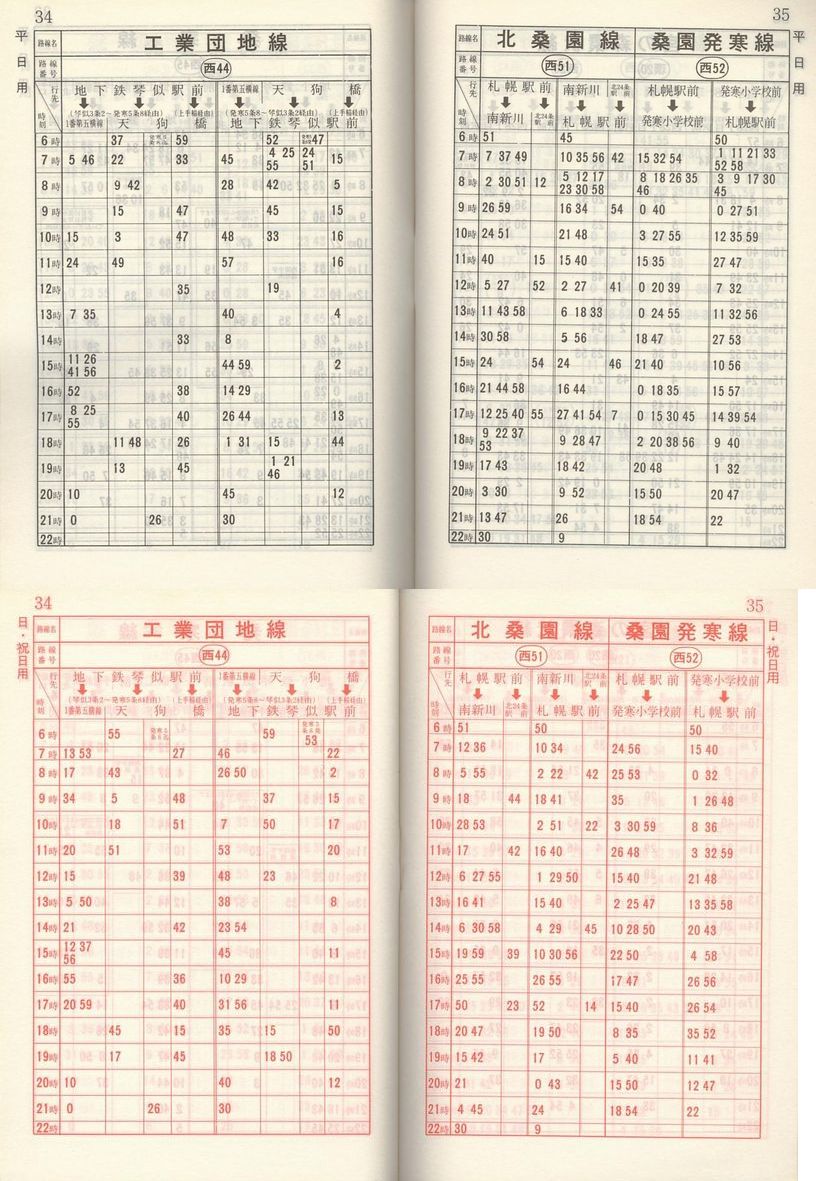 34
平日用
路線名 工業団地線
路線番号 西44
行先 地下鉄琴似駅前 1番第五横線 天狗橋
(琴似3条2～発寒5条8経由) (上手稲経由) (発寒5条8～琴似3条2経由) (上手稲経由)
時刻 1番第五横線 天狗橋 地下鉄琴似駅前
6時 37 59 52 47
7時 5 46 22 33 45 4 25 55 24 51 15
8時 9 42 28 42 5
9時 15 47 45 15
10時 15 3 47 48 33 16
11時 24 49 57 16
12時 35 19
13時 7 35 40 4
14時 33 8
15時 11 26 41 56 44 59 2
16時 52 38 14 29
17時 8 25 55 40 26 44 13
18時 11 48 26 1 31 15 44
19時 13 45 1 21 46
20時 10 45 12
21時 0 26 30
22時
35
平日用
路線名 北桑園線 桑園発寒線
路線番号 西51 西52
行先 札幌駅前 南新川 北24条駅前 札幌駅前 発寒小学校前
時刻 南新川 北24条駅前 札幌駅前 発寒小学校前 札幌駅前
6時 51 45 50
7時 7 37 49 10 35 56 42 15 32 54 1 11 21 33 52 58
8時 2 30 51 12 5 12 17 23 30 58 8 18 26 35 46 3 9 17 30 45
9時 26 59 16 34 54 0 40 0 27 51
10時 24 51 21 48 3 27 55 12 35 59
11時 40 15 15 40 15 35 27 47
12時 5 27 52 2 27 41 0 20 39 7 32
13時 11 43 58 6 18 33 0 24 55 11 32 56
14時 30 58 5 56 18 47 27 53
15時 24 54 24 46 21 40 10 56
16時 21 44 58 16 44 0 18 35 15 57
17時 12 25 40 55 27 41 54 7 0 15 30 45 14 39 54
18時 9 22 37 53 9 28 47 2 20 38 56 9 40
19時 17 43 18 42 20 48 1 32
20時 3 30 9 52 15 50 20 47
21時 13 47 26 18 54 22
22時 30 9
34
日・祝日用
路線名 工業団地線
路線番号 西44
行先 地下鉄琴似駅前 1番第五横線 天狗橋
(琴似3条2～発寒5条8経由) (上手稲経由) (発寒5条8～琴似3条2経由) (上手稲経由)
時刻 1番第五横線 天狗橋 地下鉄琴似駅前
6時 55 59 53
7時 13 53 27 46 22
8時 17 43 26 50 2
9時 34 5 48 37 15
10時 18 51 7 50 17
11時 20 51 53 20
12時 15 39 48 23
13時 5 50 38 8
14時 21 42 23 54
15時 12 37 56 45 11
16時 55 36 10 29
17時 20 59 40 31 56 11
18時 45 15 35 15 50
19時 17 45 18 50
20時 10 40 12
21時 0 26 30
22時
35
日・祝日用
路線名 北桑園線 桑園発寒線
路線番号 西51 西52
行先 札幌駅前 南新川 北24条駅前 札幌駅前 発寒小学校前
時刻 南新川 北24条駅前 札幌駅前 発寒小学校前 札幌駅前
6時 51 50 50
7時 12 36 10 34 24 56 15 40
8時 5 55 2 22 42 25 53 0 32
9時 18 44 18 41 35 1 26 48
10時 28 53 2 51 22 3 30 59 8 36
11時 17 42 16 40 26 48 3 32 59
12時 6 27 55 1 29 50 15 40 21 48
13時 16 41 15 40 2 25 47 13 35 58
14時 6 30 58 4 29 45 10 28 50 20 43
15時 19 59 39 10 30 56 22 50 4 58
16時 25 55 26 55 17 47 26 56
17時 50 23 52 14 15 40 26 54
18時 20 47 19 50 8 35 35 52
19時 15 42 17 5 40 11 41
20時 21 0 43 15 50 12 47
21時 4 45 24 18 54 22
22時 30 9